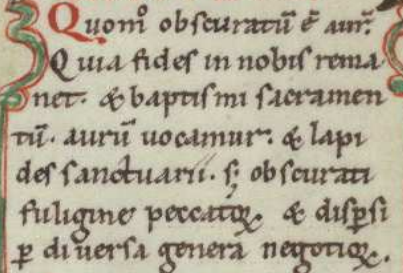 Quom̊ obscuratū ē aur̄.
Quia fides in nobis rema
net. & baptismi sacramen
tū. aurū uocamur. & lapi
des sanctuarii. s; obscurati
fuligine peccatoꝝ. & disꝑsi
ꝑ diuersa genera negotioꝝ.